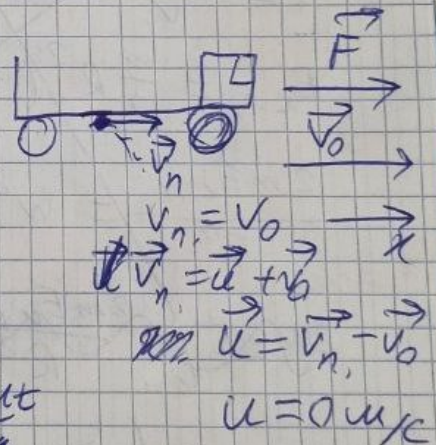 F⃗
V⃗₀
V⃗ₙ
Vₙ. = V₀
x
V⃗ₙ. = u⃗ + V⃗₀
u⃗ = V⃗ₙ. - V⃗₀
ut
u = 0 м/с